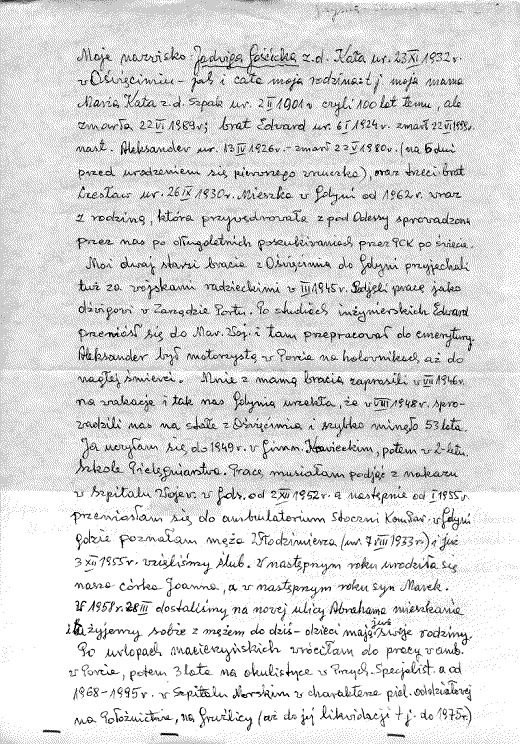 Moje nazwisko Jadwiga Gościcka z.d. Kała ur. 23 XI 1932r.
w Oświęcimiu – jak i cała moja rodzina t.j moja mama
Maria Kała z d. Szpak ur. 2 II 1901r czyli 100 lat temu, ale
zmarła 22 VI 1989r; brat Edward ur. 6 I 1924r. zmarł 22 VII
nast. Aleksander ur. 13 IV 1926r. – zmarł 22 V 1980r. (na 6 dni
przed urodzeniem się pierwszego wnuczka), oraz trzeci brat
Czesław ur. 26 IX 1930r. Mieszka w Gdyni od 1962r. wraz
z rodziną, która przywędrowała z pod Odessy sprowadzona
przez nas po długoletnich poszukiwaniach przez PCK po świecie.
Moi dwaj starsi bracia z Oświęcimia do Gdyni przyjechali
tuż za wojskami radzieckimi w III 1945r. Podjęli pracę jako
dźwigowi w Zarządzie Portu. Po studiach inżynierskich Edward
przeniósł się do Mar. Woj. i tam przepracował do emerytury.
Aleksander był motorzystą w Porcie na holownikach aż do
nagłej śmierci. Mnie z mamą bracia zaprosili w VII 1946r.
na wakacje i tak nas Gdynia urzekła, że w VIII 1948r. spro-
wadzili nas na stałe z Oświęcimia i szybko minęło 53 lata.
Ja uczyłam się do 1949r. w Gimn. Krawieckim, potem w 2-letn.
Szkole Pielęgniarstwa. Pracę musiałam podjąć z nakazu
w Szpitalu Wojew. w Gds. od 2 XII 1952r. a następnie od I 1955r.
przeniosłam się do ambulatorium Stoczni Komun. w Gdyni
gdzie poznałam męża Włodzimierza (ur. 7 VIII 1933r) i już
3 XII 1955r. wzięliśmy ślub. W następnym roku urodziła się
nasza córka Joanna, a w następnym roku syn Marek.
W 1958r. 28 III dostaliśmy na nowej ulicy Abrahama mieszkanie
i tu żyjemy sobie z mężem do dziś – dzieci mają już swoje rodziny.
Po urlopach macierzyńskich wróciłam do pracy w amb.
w Porcie, potem 3 lata na okulistyce w Przych. Specjalist. a od
1968–1995r. w Szpitalu Morskim w charakterze piel. oddziałowej
na Położnictwie, na Gruźlicy (aż do jej likwidacji t.j. do 1975r.)